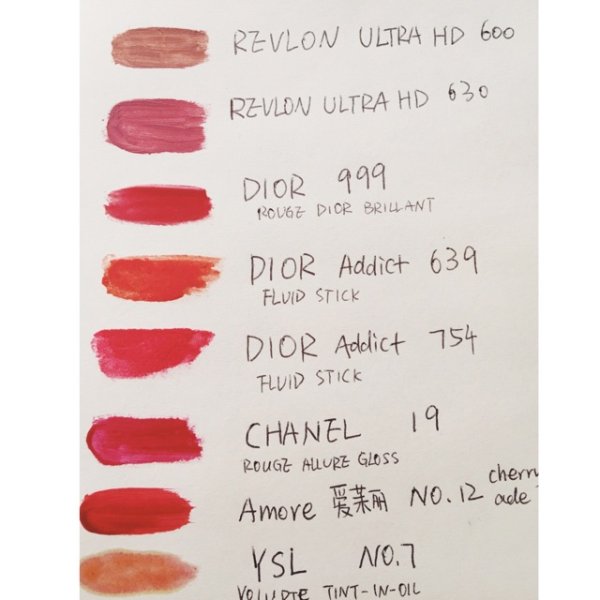 REVLON ULTRA HD 600
REVLON ULTRA HD 630
DIOR 999
ROUGE DIOR BRILLANT
DIOR Addict 639
FLUID STICK
DIOR Addict 754
FLUID STICK
CHANEL 19
ROUGE ALLURE GLOSS
Amore 爱茉丽 NO.12 cherry
ade
YSL NO.7
VOLUPTE TINT-IN-OIL